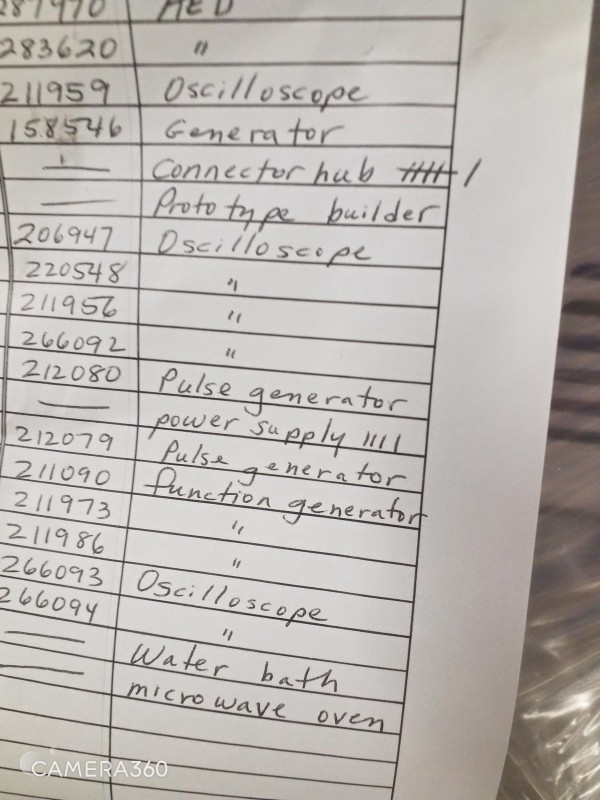 287970 AED
283620 "
211959 Oscilloscope
158546 Generator
— Connector hub 卌 /
— Prototype builder
206947 Oscilloscope
220548 "
211956 "
266092 "
212080 Pulse generator
— power supply ||||
212079 Pulse generator
211090 function generator
211973 "
211986 "
266093 Oscilloscope
266094 "
— Water bath
— microwave oven
CAMERA360